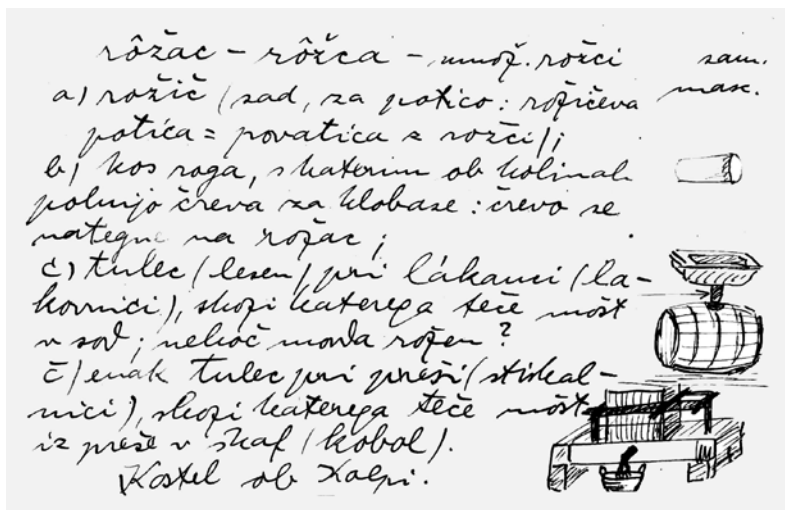 rôžac - rôžca - množ. rožci sam. mask.
a) rožič (sad, za potico: rožičeva
potica = povatica z rožci);
b) kos roga, s katerim ob kolinah
polnijo čreva za klobase: črevo se
nategne na rožac;
c) tulec (lesen) pri lákanci (la-
kovnici), skozi katerega teče mošt
v sod; nekoč morda rožen?
č) enak tulec pri prèši (stiskal-
nici), skozi katerega teče mòšt
iz preše v škaf (kobol).
Kostel ob Kolpi.